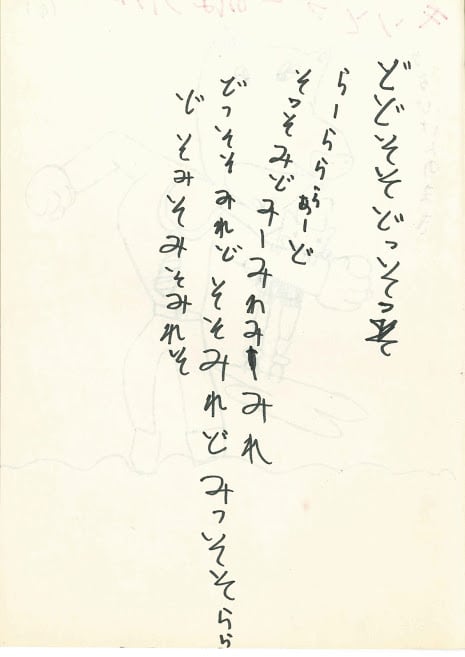 どどそそどっそっそ
らーらららら ーど
そっそみど みーみれみーみれ
どっそそ みれど そそみれど みっそそらら
ど そみそみそみれそ